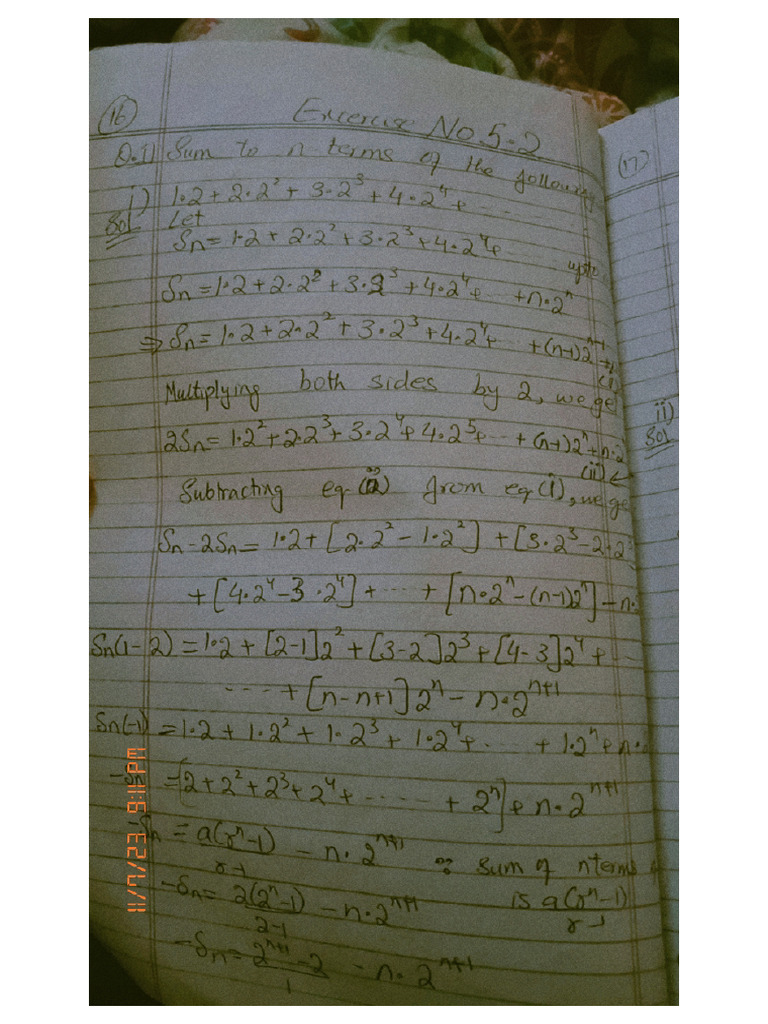 (16)
Excercise No 5.2
Q.1) Sum to n terms of the following
i) 1·2 + 2·2² + 3·2³ + 4·2⁴ + ......
Sol Let
Sn = 1·2 + 2·2² + 3·2³ + 4·2⁴ + ....
Sn = 1·2 + 2·2² + 3·2³ + 4·2⁴ + ... + n·2ⁿ
⇒ Sn = 1·2 + 2·2² + 3·2³ + 4·2⁴ + ... + (n-1)2ⁿ⁻¹
(i)
Multiplying both sides by 2, we get
2Sn = 1·2² + 2·2³ + 3·2⁴ + 4·2⁵ + ... + (n-1)2ⁿ + n·2
(ii) ←
Subtracting eq (ii) from eq (i), we get
Sn - 2Sn = 1·2 + [2·2² - 1·2²] + [3·2³ - 2·2³
+ [4·2⁴ - 3·2⁴] + .... + [n·2ⁿ - (n-1)2ⁿ] - n·
Sn(1-2) = 1·2 + [2-1]2² + [3-2]2³ + [4-3]2⁴ + ..
.... + [n-n+1]2ⁿ - n·2ⁿ⁺¹
Sn(-1) = 1·2 + 1·2² + 1·2³ + 1·2⁴ + .... + 1·2ⁿ + n·
-Sn = [2 + 2² + 2³ + 2⁴ + ...... + 2ⁿ] + n·2ⁿ⁺¹
-Sn = a(rⁿ-1)/r-1 - n·2ⁿ⁺¹ ∵ sum of n terms
-Sn = 2(2ⁿ-1)/2-1 - n·2ⁿ⁺¹ is a(rⁿ-1)/r-1
-Sn = 2ⁿ⁺¹-2/1 - n·2ⁿ⁺¹
(17)
ii)
Sol